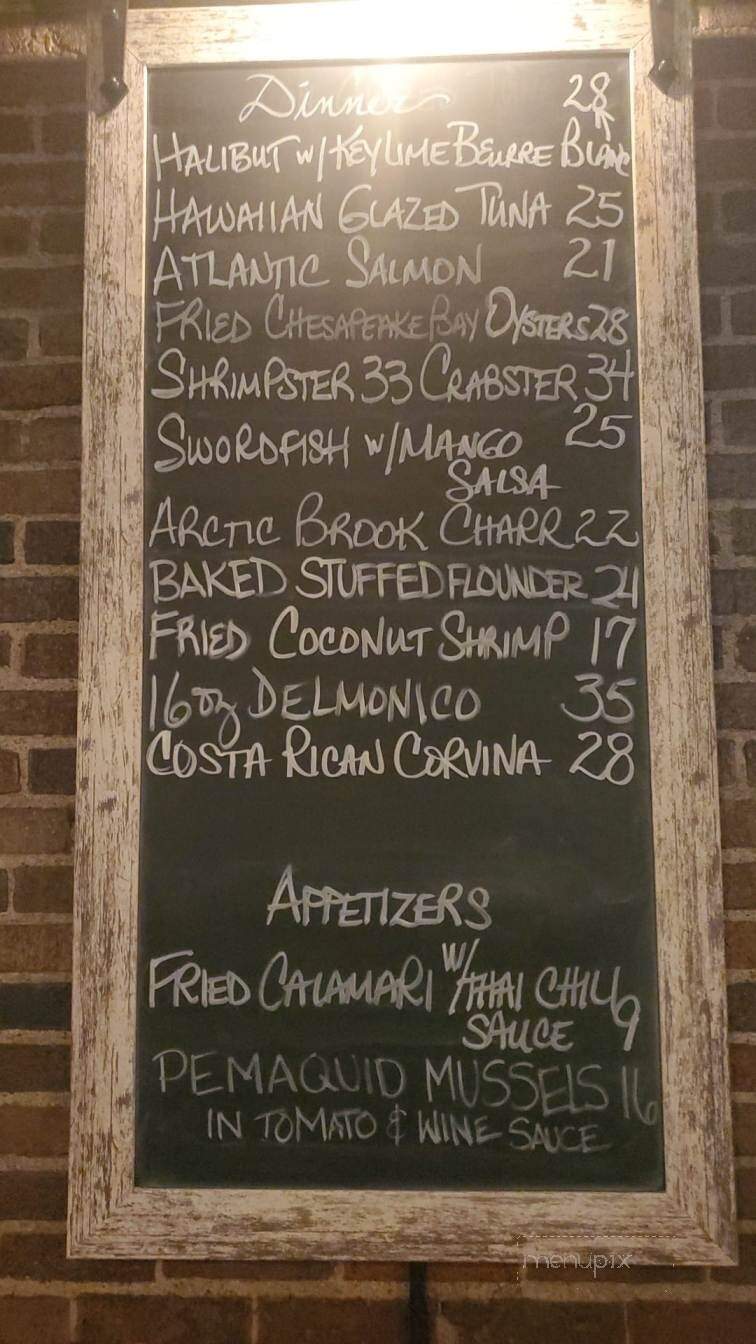 Dinner 28
HALIBUT w/ KEY LIME BEURRE BLANC
HAWAIIAN GLAZED TUNA 25
ATLANTIC SALMON 21
FRIED CHESAPEAKE BAY OYSTERS 28
SHRIMPSTER 33 CRABSTER 34
SWORDFISH w/ MANGO 25
SALSA
ARCTIC BROOK CHARR 22
BAKED STUFFED FLOUNDER 24
FRIED COCONUT SHRIMP 17
16oz DELMONICO 35
COSTA RICAN CORVINA 28
APPETIZERS
FRIED CALAMARI w/ THAI CHILI 9
SAUCE
PEMAQUID MUSSELS 16
IN TOMATO & WINE SAUCE
menupix